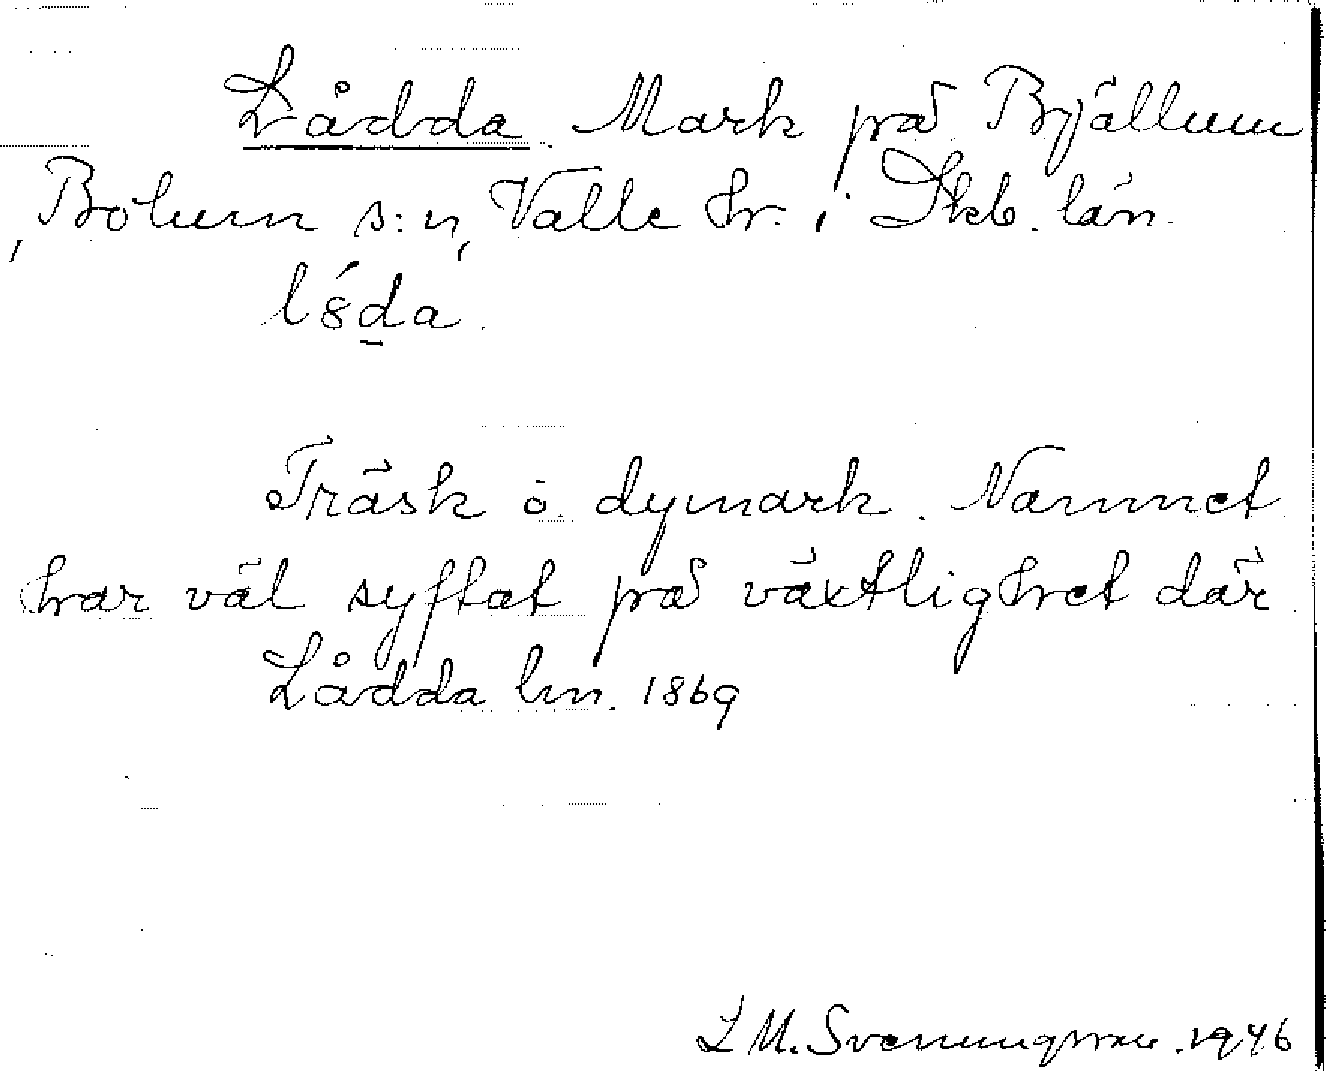 Lådda. Mark på Bjällum
, Bolum s:n, Valle hr. i Skb. län.
l8́da.
Träsk o. dymark. Namnet
har väl syftat på växtlighet där.
Lådda lm. 1869
L M. Svenungsson. 1946